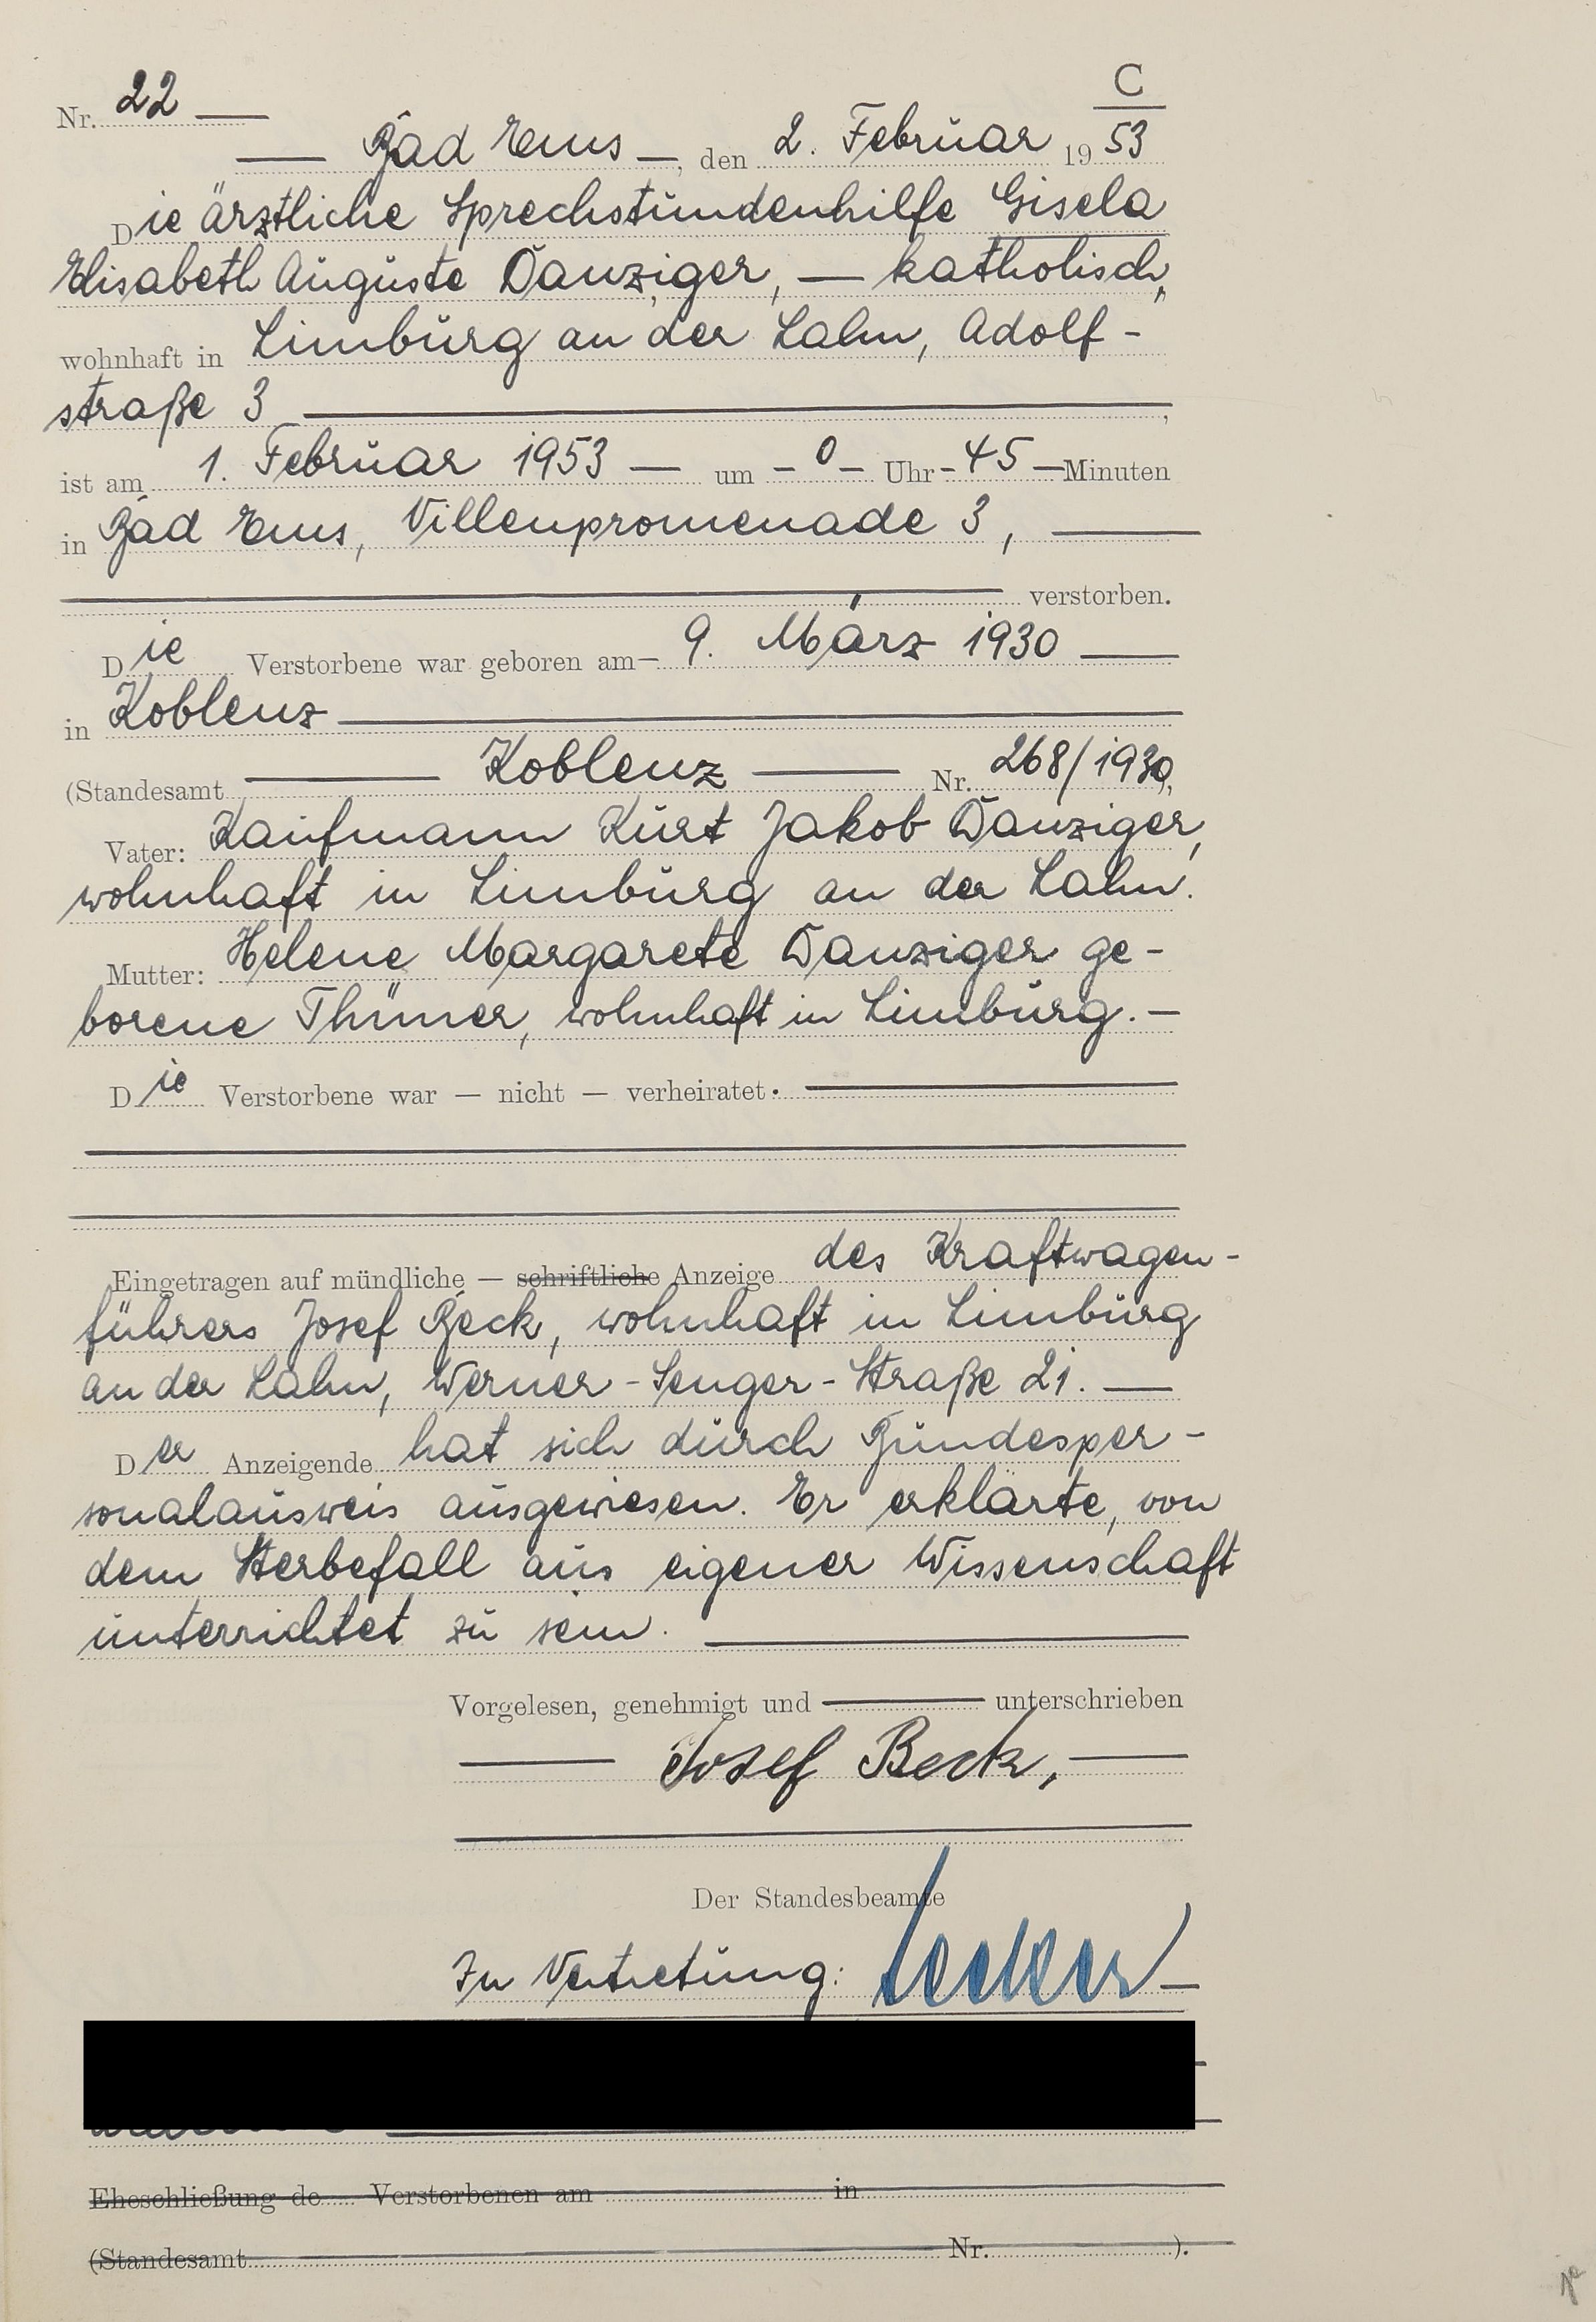 C
Nr. 22 —
— Bad Ems —, den 2. Februar 1953
Die ärztliche Sprechstundenhilfe Gisela
Elisabeth Auguste Danziger, — katholisch,
wohnhaft in Limburg an der Lahn, Adolf-
straße 3 ,
ist am 1. Februar 1953 — um - 0 - Uhr - 45 — Minuten
in Bad Ems, Villenpromenade 3, —
verstorben.
Die Verstorbene war geboren am - 9. März 1930 —
in Koblenz —
(Standesamt — Koblenz — Nr. 268/1930,
Vater: Kaufmann Kurt Jakob Danziger,
wohnhaft in Limburg an der Lahn.
Mutter: Helene Margarete Danziger ge-
borene Thümer, wohnhaft in Limburg. —
Die Verstorbene war — nicht — verheiratet.
Eingetragen auf mündliche — schriftliche Anzeige des Kraftwagen-
führers Josef Beck, wohnhaft in Limburg
an der Lahn, Werner-Senger-Straße 21. —
Der Anzeigende hat sich durch Bundesper-
sonalausweis ausgewiesen. Er erklärte, von
dem Sterbefall aus eigener Wissenschaft
unterrichtet zu sein. —
Vorgelesen, genehmigt und — unterschrieben
— Josef Beck, —
Der Standesbeamte
In Vertretung:
Eheschließung de Verstorbenen am in
(Standesamt Nr. ).